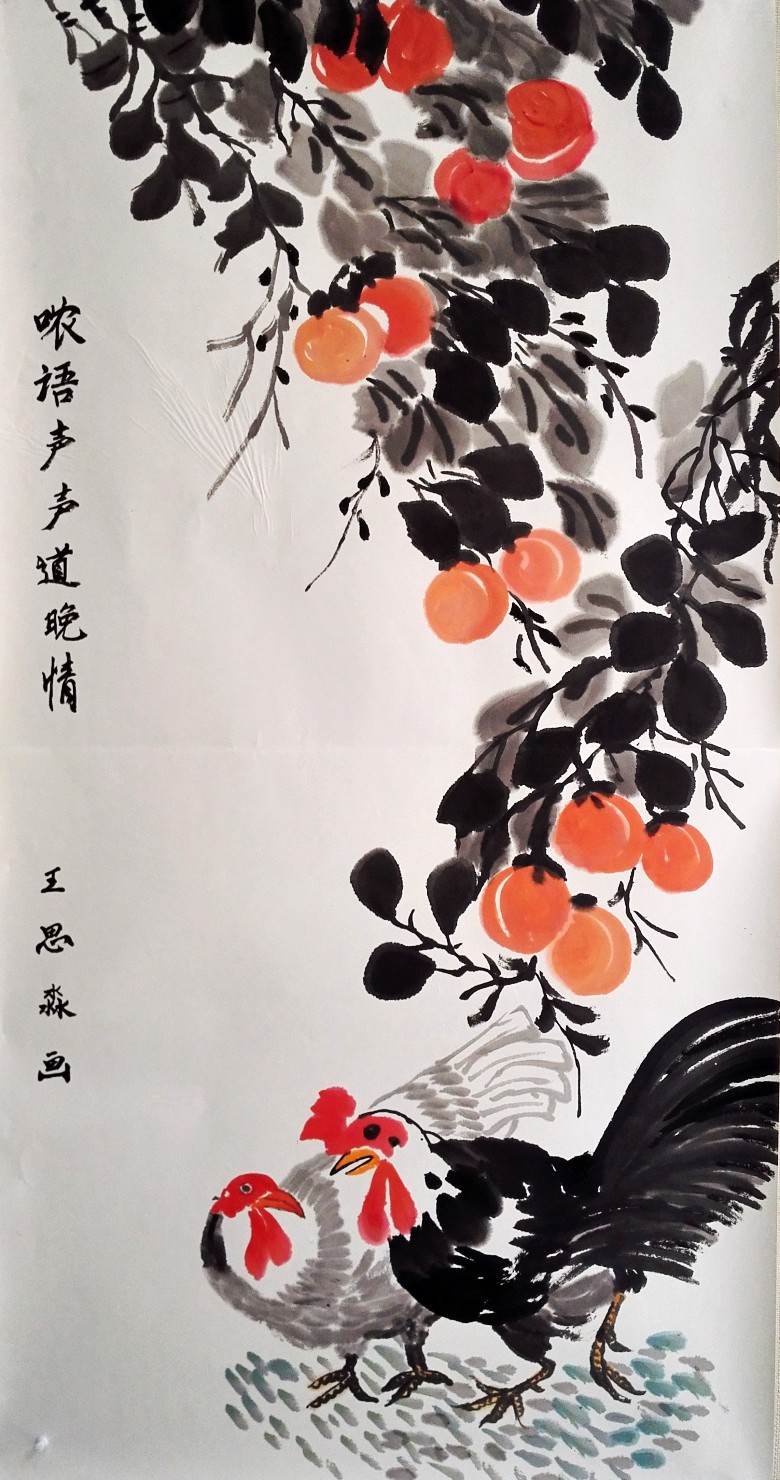 哝语声声道晚情
王思淼画